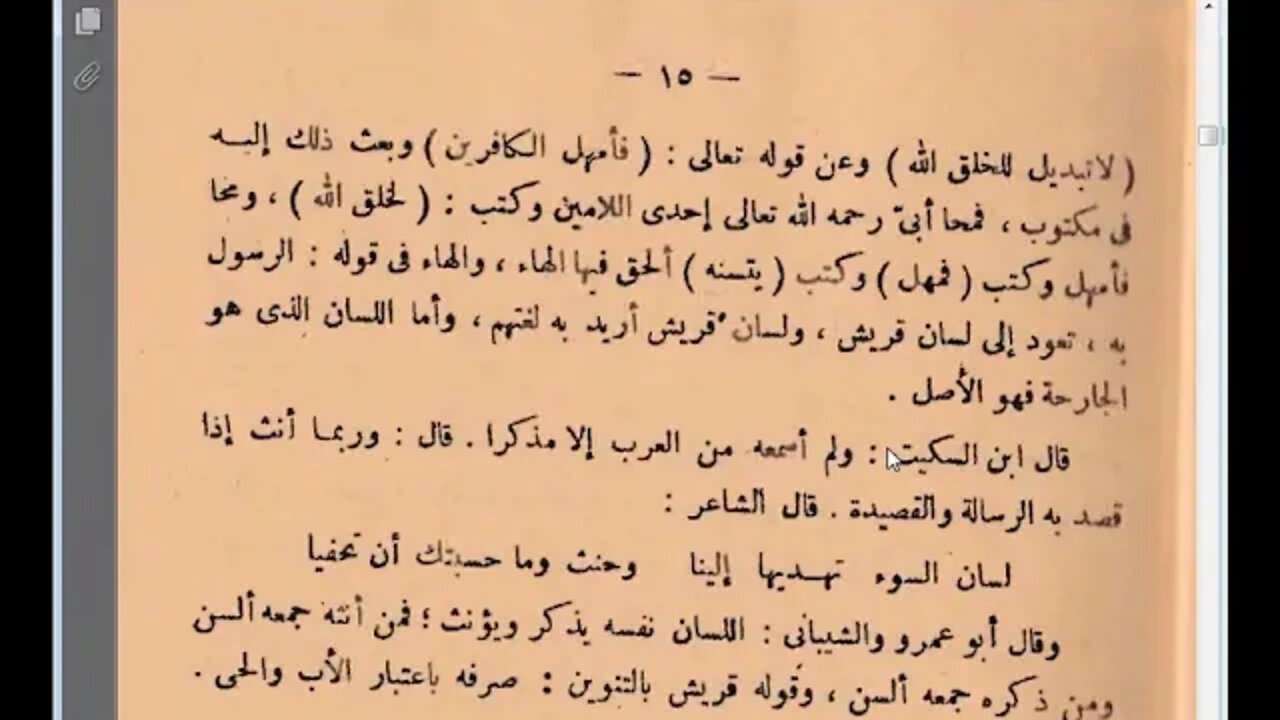 — ١٥ —
( لاتبديل للخلق الله ) وعن قوله تعالى : ( فأمهل الكافرين ) وبعث ذلك إليه
فى مكتوب ، فمحا أبىّ رحمه الله تعالى إحدى اللامين وكتب : ( لخلق الله ) ، ومحا
فأمهل وكتب ( فمهل ) وكتب ( يتسنه ) ألحق فيها الهاء ، والهاء فى قوله : الرسول
به ، تعود إلى لسان قريش ، ولسان قريش أريد به لغتهم ، وأما اللسان الذى هو
الجارحة فهو الأصل .
قال ابن السكيت : ولم أسمعه من العرب إلا مذكرا . قال : وربما أنث إذا
قصد به الرسالة والقصيدة . قال الشاعر :
لسان السوء تهديها إلينا وحنث وما حسبتك أن تحفيا
وقال أبو عمرو والشيبانى : اللسان نفسه يذكر ويؤنث ؛ فمن أنثه جمعه ألسن
ومن ذكره جمعه ألسن ، وقوله قريش بالتنوين : صرفه باعتبار الأب والحى .